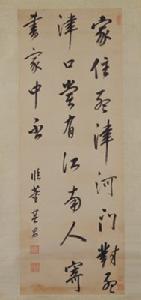 家住孟津河門對孟
津口嘗有江南人寄
書家中否
臨董